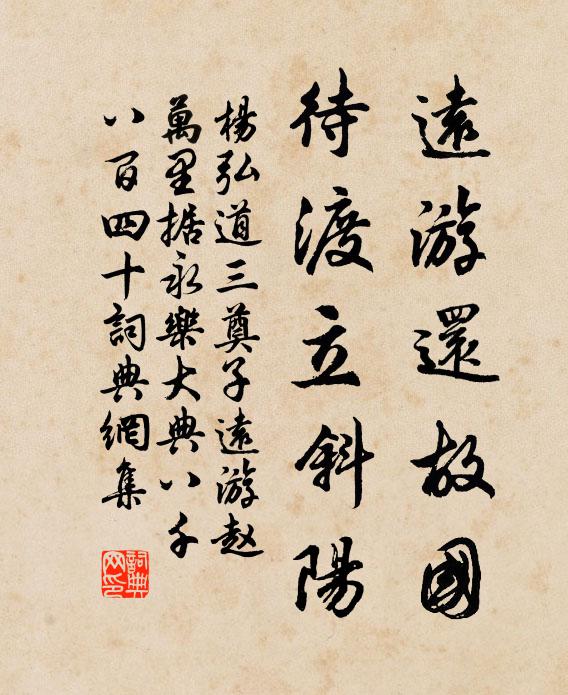 遠游還故國
待渡立斜陽
楊弘道三奠子遠游赵
萬里据永樂大典八千
八百四十詞典網集
詞典网印